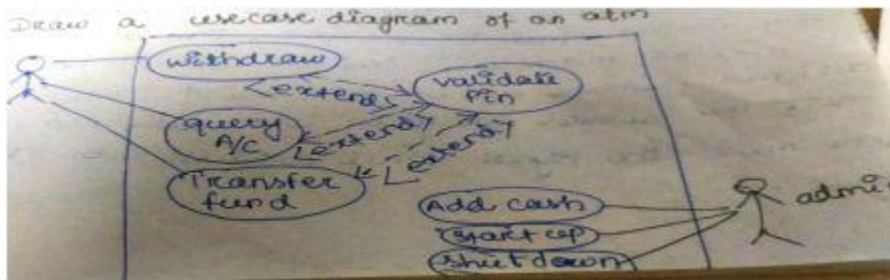 Draw a usecase diagram of an atm
withdraw
validate
Pin
<extend>
query
A/c
<extend>
<extend>
Transfer
fund
Add cash
start up
admi
shut down